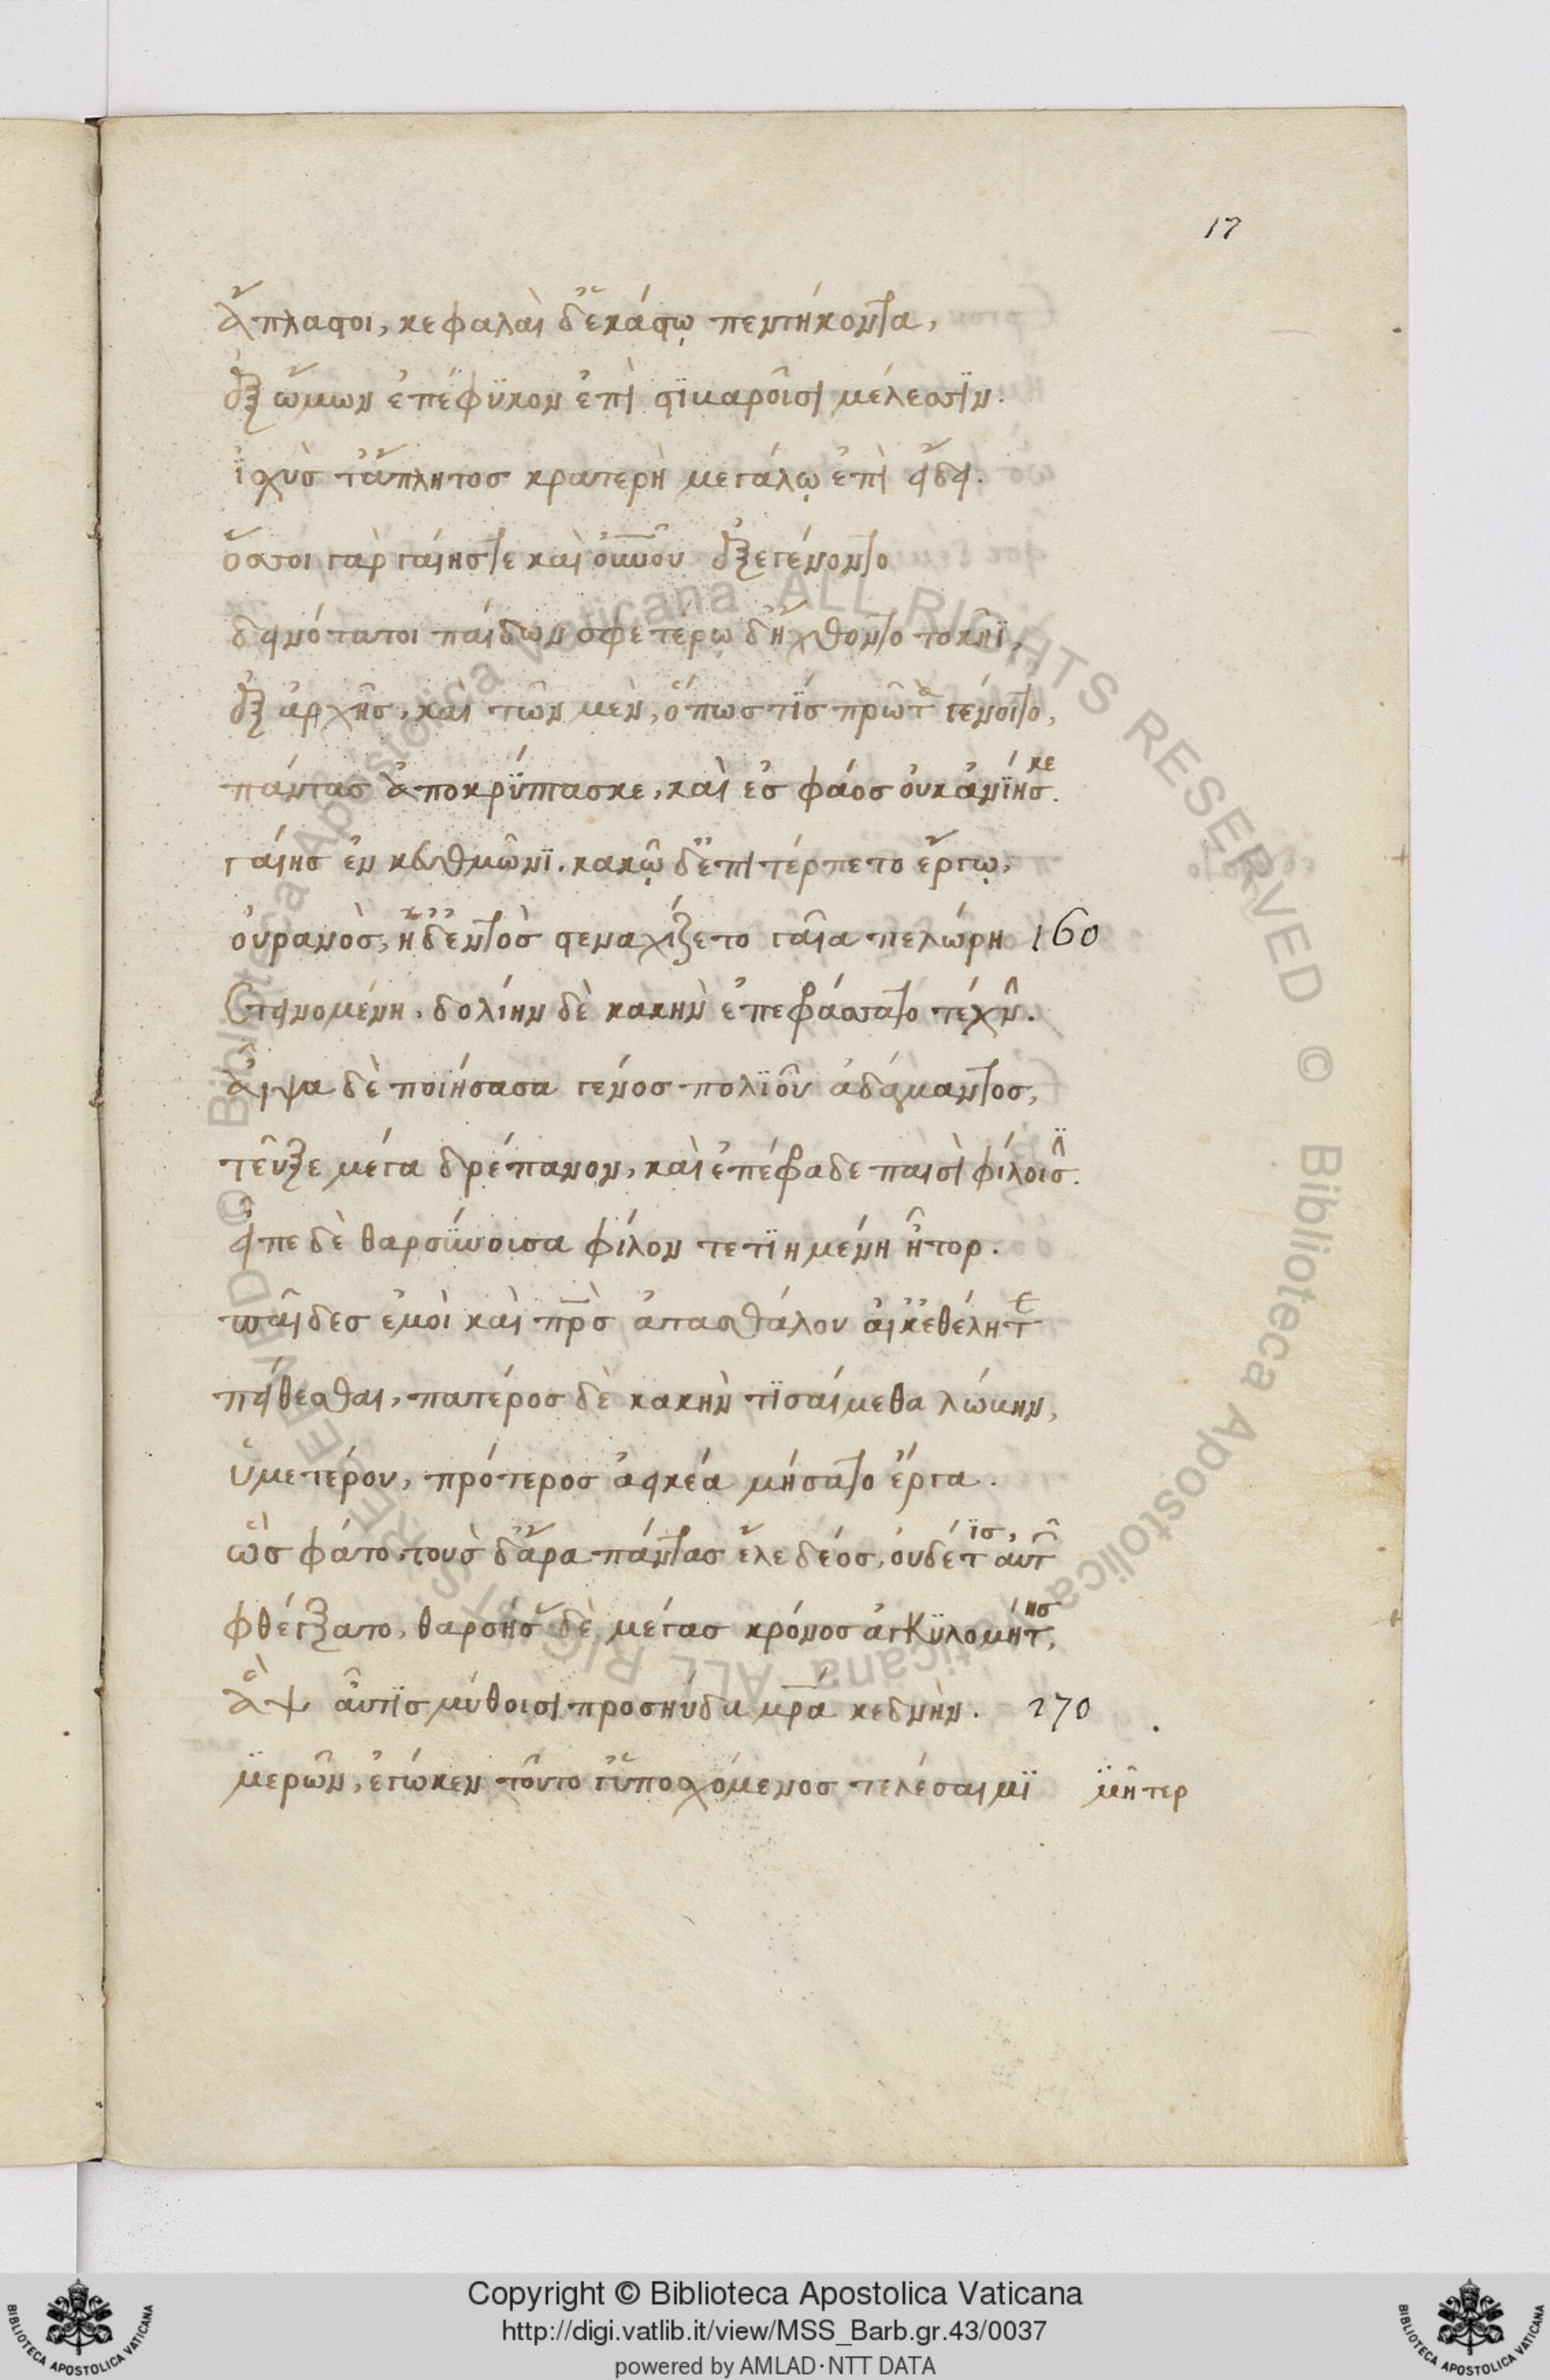 17
ἄπλαστοι, κεφαλαὶ δ' ἑκάστῳ πεντήκοντα,
ἐξ ὤμων ἐπέφϋκον ἐπὶ στϊβαροῖσι μέλεσσϊν.
ἰσχὺσ τ' ἄπλητοσ κρατερὴ μεγάλῳ ἐπὶ εἴδει.
ὅσσοι γὰρ γαίησ τε καὶ οὐνοῦ ἐξεγένοντο
δεινότατοι παίδων σφετέρῳ δ' ἤχθοντο τοκῆϊ,
ἐξ ἀρχῆσ, καὶ τῶν μὲν, ὅπωσ τϊσ πρῶτα γένοιτο,
πάντασ ἀποκρύπτασκε, καὶ ἐσ φάοσ οὐκ ἀνΐησκε.
γαίησ ἐν κευθμῶνϊ. κακῷ δ' ἐπιτέρπετο ἔργῳ,
οὐρανὸσ, ἡ δ' ἐντὸσ στεναχίζετο γαῖα πελώρη 160
στεινομένη. δολίην δὲ κακὴν ἐπεφράσσατο τέχνην.
αἶψα δὲ ποιήσασα γένοσ πολϊοῦ ἀδάμαντοσ,
τεῦξε μέγα δρέπανον, καὶ ἐπέφραδε παισὶ φίλοισϊ.
εἶπε δὲ θαρσΰνοισα φίλον τετϊημένη ἦτορ.
παῖδεσ ἐμοὶ καὶ πρὸσ ἀτασθάλου αἴ κ' ἐθέλητε
πείθεσθαι, πατέροσ δὲ κακὴν τϊσαίμεθα λώβην,
ὑμετέρου, πρότεροσ ἀεικέα μήσατο ἔργα.
ὣσ φάτο, τοὺσ δ' ἄρα πάντασ ἕλε δέοσ, οὐδέ τισ, αὐτῶν
φθέγξατο, θαρσήσ δὲ μέγασ κρόνοσ ἀγκϋλομήτησ,
ἂψ αὖτϊσ μύθοισι προσηύδα μρα κεδνὴν. 170
μῆτερ